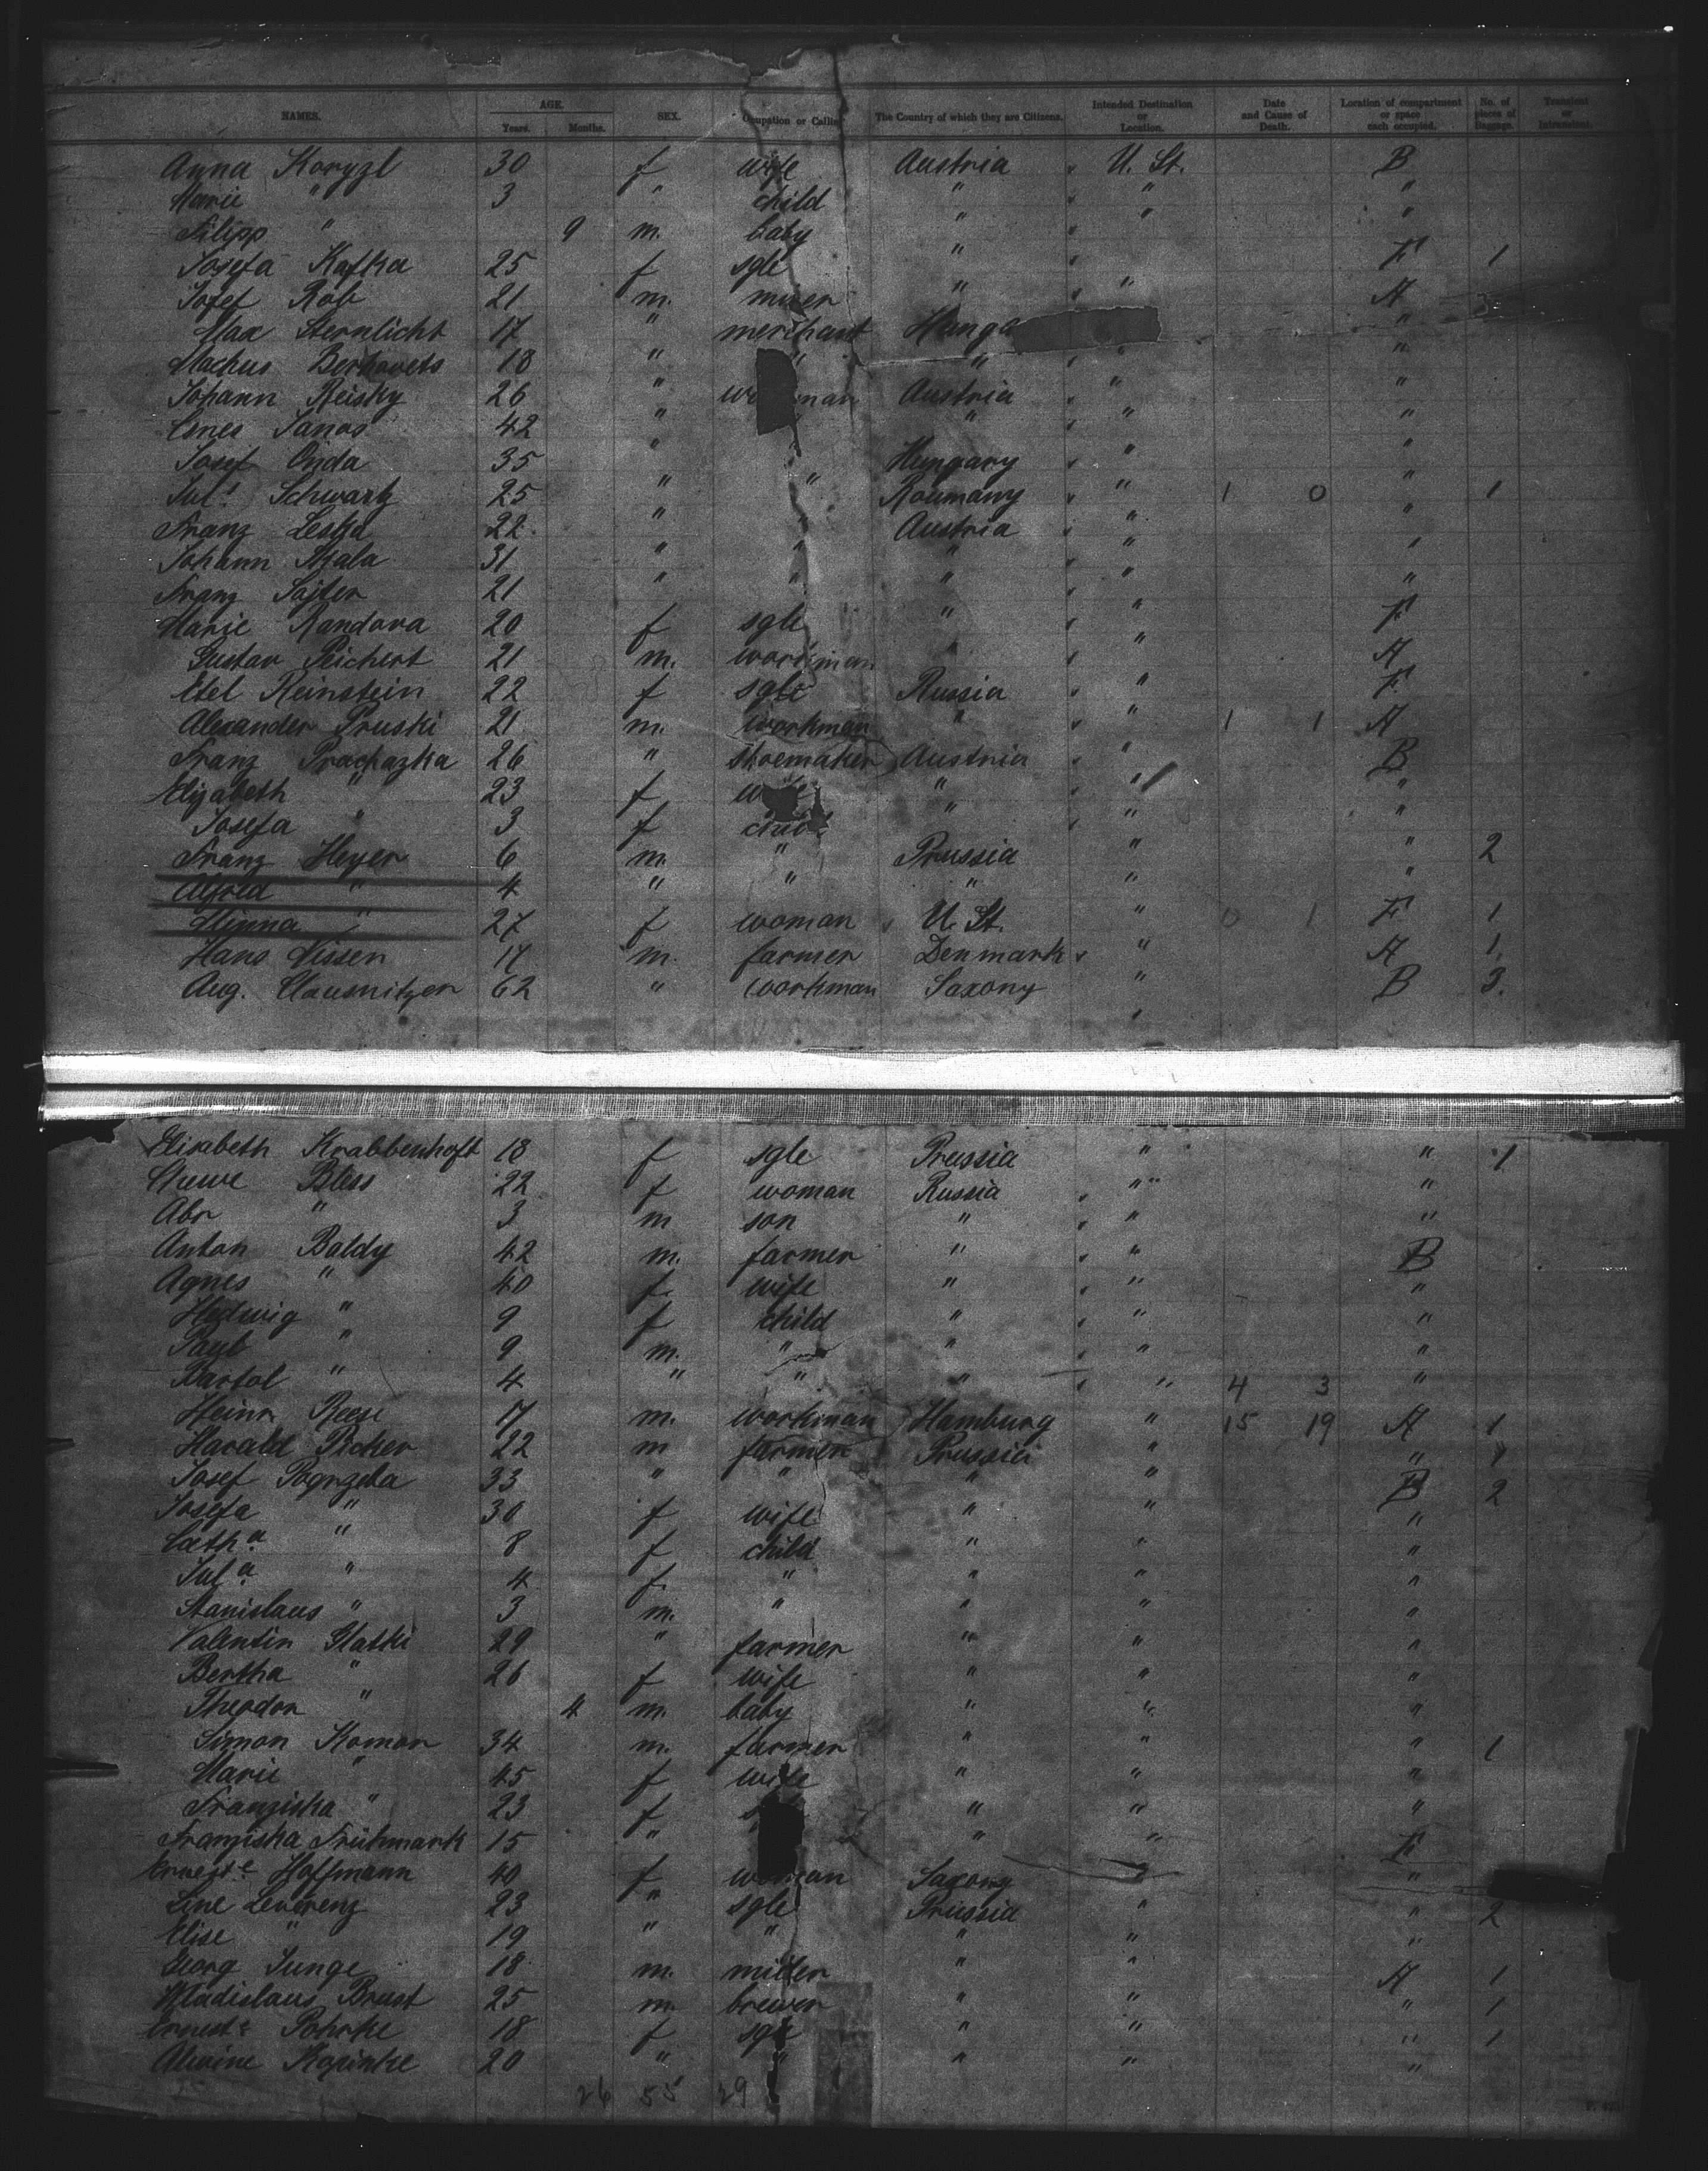 NAMES. AGE. Years. Months. SEX. Occupation or Calling The Country of which they are Citizens. Intended Destination or Location. Date and Cause of Death. Location of compartment or space each occupied. No. of pieces of Baggage. Transient or Intransient.
Anna Koryzl 30 f wife Austria " U. St. B
Marie " 3 " child " " " "
Filipp " 9 m. baby " " " "
Josefa Kafka 25 f sgle " " F 1
Josef Rob 21 m. miner " " " A 3
Max Sternlicht 17 " merchant Hunga "
Machus Berkovets 18 " " " " " "
Johann Reisky 26 " wo man Austria " " "
Janos 42 " " " " "
Josef Onda 35 " " Hungary " " "
Jul. Schwartz 25 " " Roumany " " 1 0 " 1
Franz Leska 22 " " Austria " " "
Johann Skala 31 " " " " " "
Franz Sajter 21 " " " " " "
Marie Kandova 20 f sgle " " " F
Gustav Peichert 21 m. workman " " " A
Etel Reinstein 22 f sgle Russia " " F
Alexander Pruski 21 m. workman " " " 1 1 A
Franz Prochazka 26 " shoemaker Austria " " B
Elizabeth " 23 f w " " " "
Josefa " 3 f child " " " "
Franz Heyer 6 m. " Prussia " " 2
Alfred " 4 " " " " "
Minna " 27 f woman U. St. " 0 1 F 1
Hans Nissen 17 m. farmer Denmark " A 1
Aug. Clausnitzer 62 " workman Saxony " B 3.
Elisabeth Krabbenhoft 18 f sgle Prussia " " 1
Bless 22 f woman Russia " " "
Abr " 3 m son " " " "
Anton Baldy 42 m. farmer " " " B
Agnes " 40 f. wife " " " "
Hedwig " 9 f child " " " "
Paul " 9 m. " " " " "
Bartol " 4 " " " " " 4 3 "
Heinr Reese 17 m. workman Hamburg " 15 19 A 1
Harald Picker 22 m farmer Prussia " " 1
Josef Pogrzeba 33 " " " " B 2
Josefa " 30 f wife " " "
Cath.a " 8 f child " " "
Jul.a " 4 f. " " " "
Stanislaus " 3 m. " " " "
Valentin Glatki 29 " farmer " " "
Bertha " 26 f wife " " "
Theodor " 4 m. baby " " "
Simon Komor 34 m. farmer " " " 1
Marie " 45 f wife " " "
Franziska " 23 f s " " "
Franziska Frühmark 15 " " " F
Ernest.e Hoffmann 40 f woman Saxony "
Line Leverenz 23 " sgle Prussia " " 2
Elise " 19 " " " " "
Georg Junge 18 m. miller " " A 1
Wladislaus Brust 25 m. brewer " " " 1
Ernest.e Pohrke 18 f sgle " " " 1
Alwine Kozinke 20 " " " " "
26 55 29